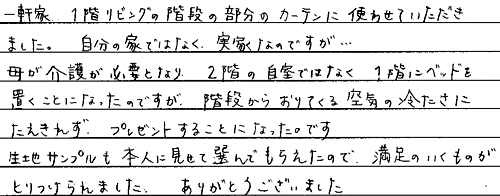 一軒家 1階リビングの階段の部分のカーテンに使わせていただき
ました。 自分の家ではなく、実家なのですが…
母が介護が必要となり 2階の自室ではなく 1階にベッドを
置くことになったのですが、階段からおりてくる空気の冷たさに
たえきれず、プレゼントすることになったのです
生地サンプルも本人に見せて選んでもらえたので、満足のいくものが
とりつけられました。 ありがとうございました